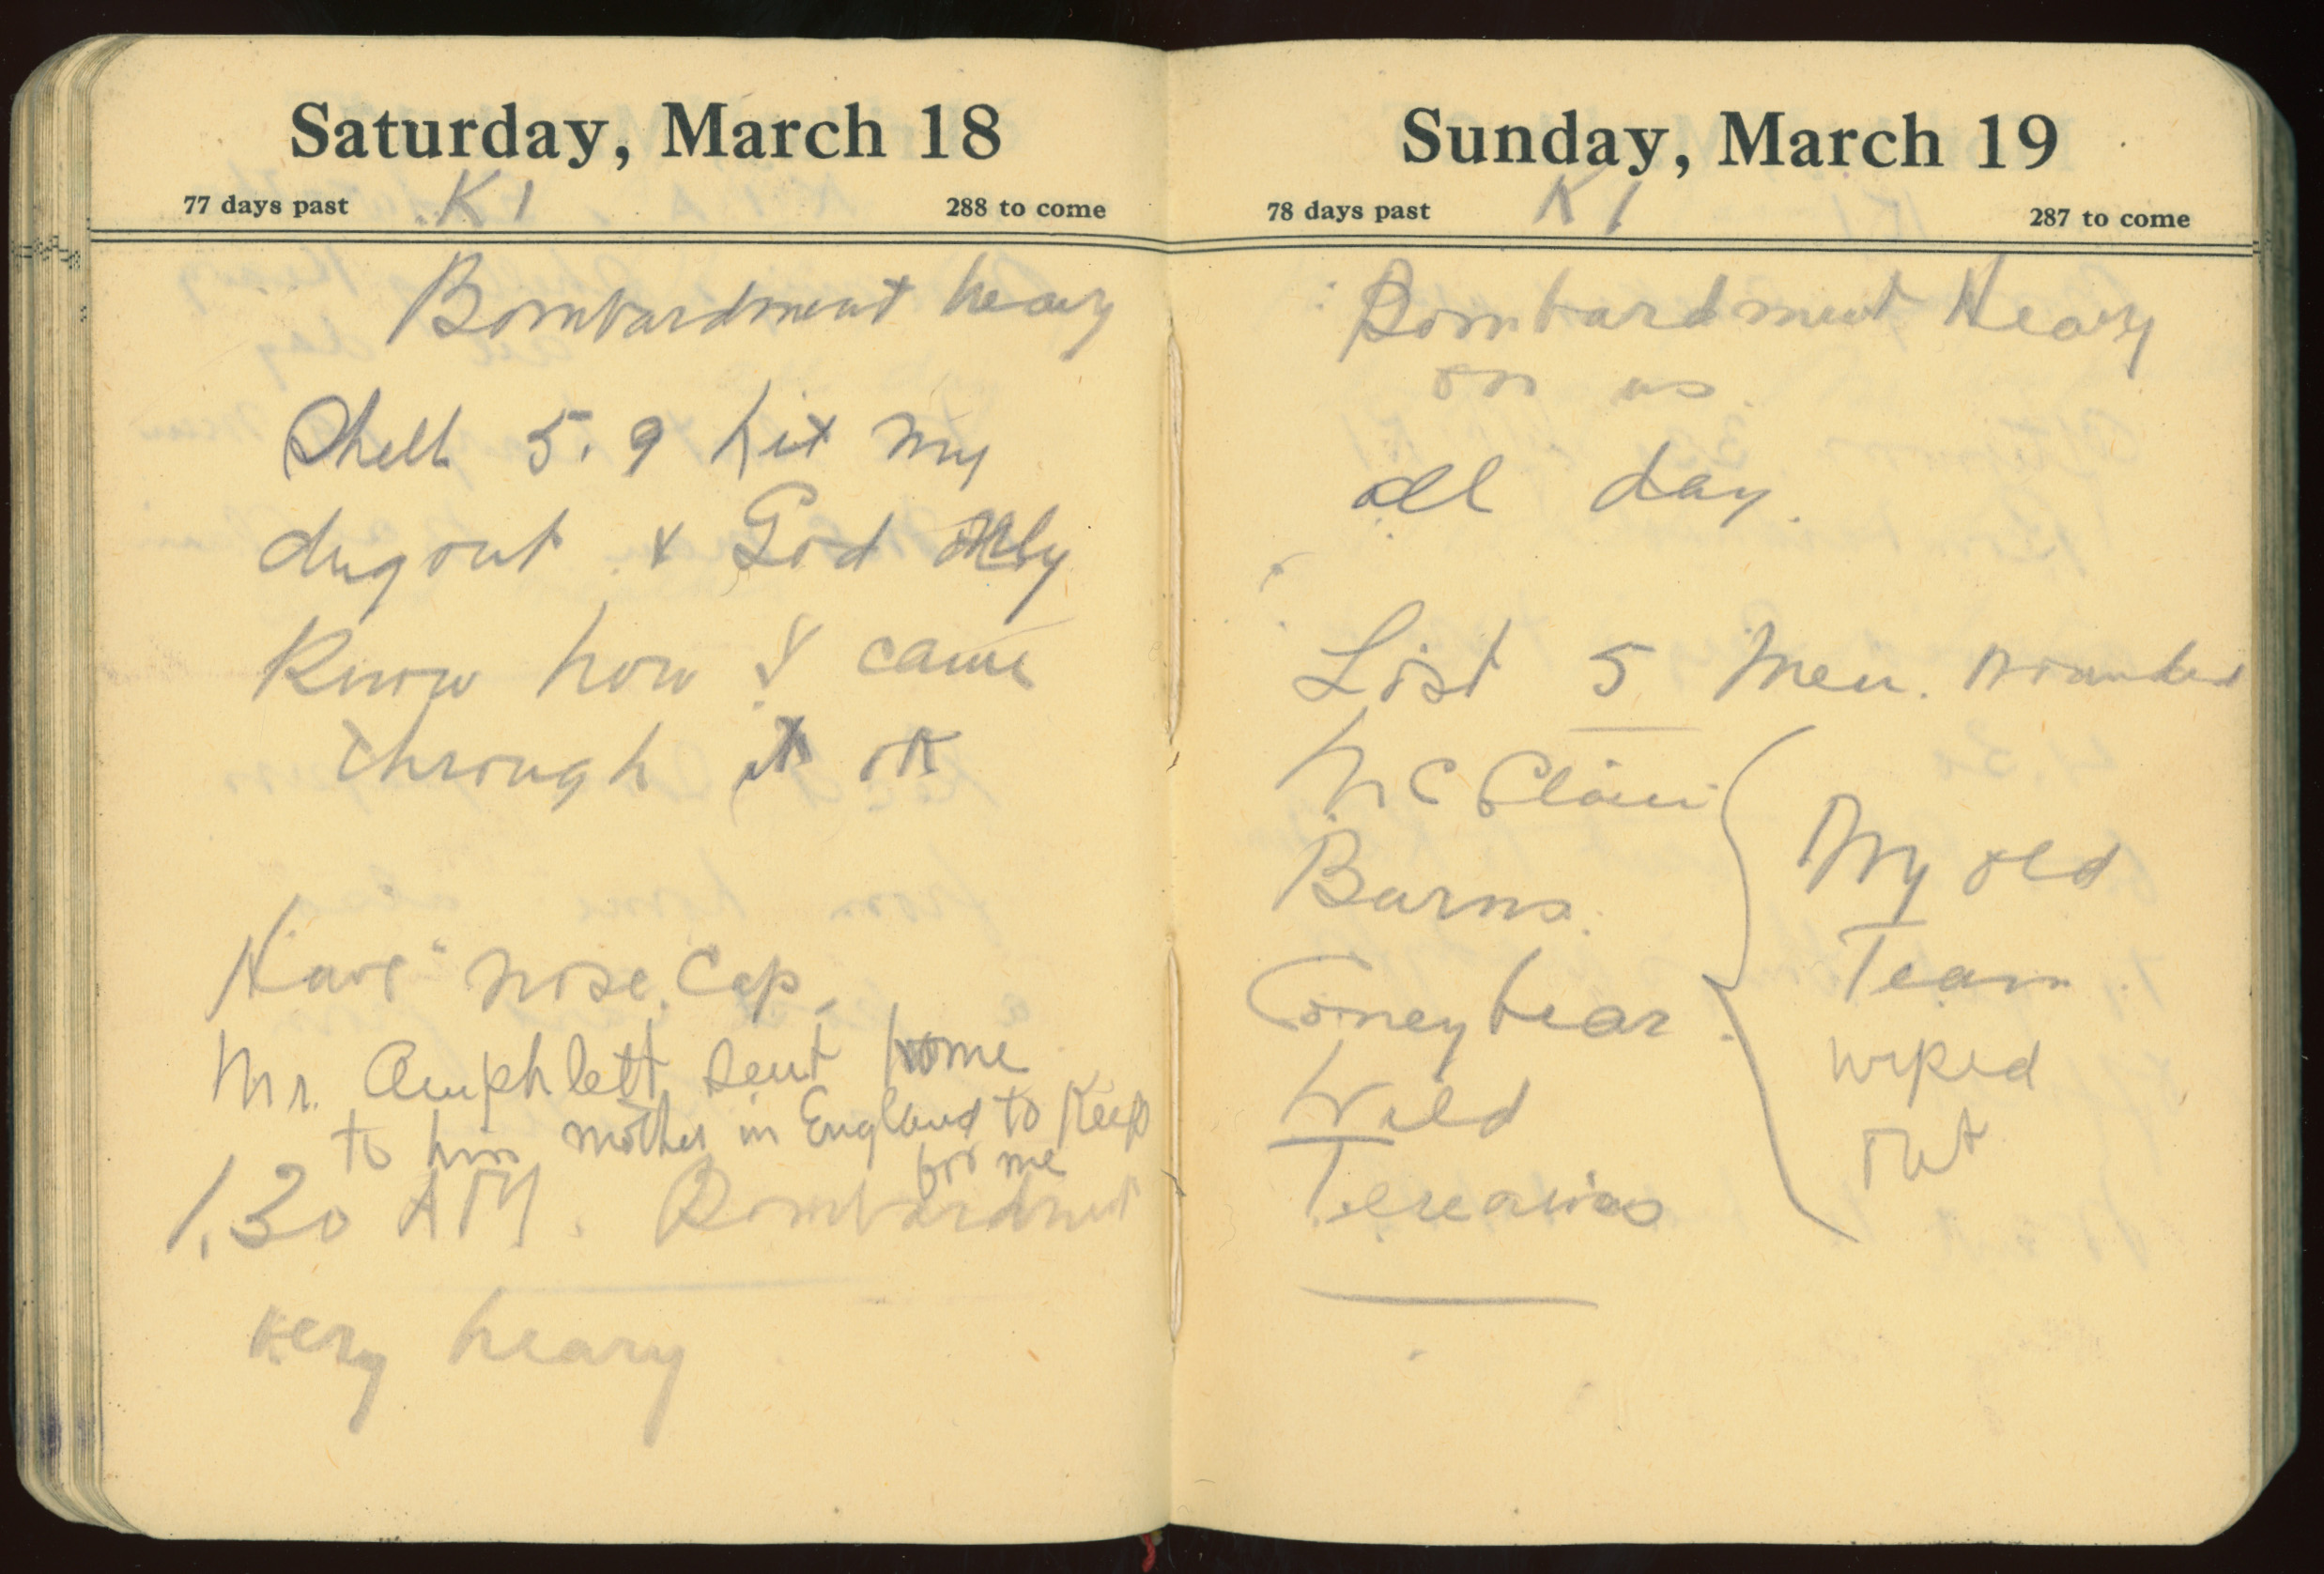 Saturday, March 18
77 days past K1 288 to come
Bombardment heavy
Shell 5.9 hit my
dugout & God only
Know how I came
through it OK
Have "nose cap
Mr. Amphlett sent home
to his mother in England to Keep
for me
1.30 AM. Bombardment
very heavy
Sunday, March 19
78 days past K1 287 to come
Bombardment Heavy
on us
all day.
Lost 5 Men. Wounded
McClain
Burns.
Coneybear
Wild
My old
Team
wiped
out